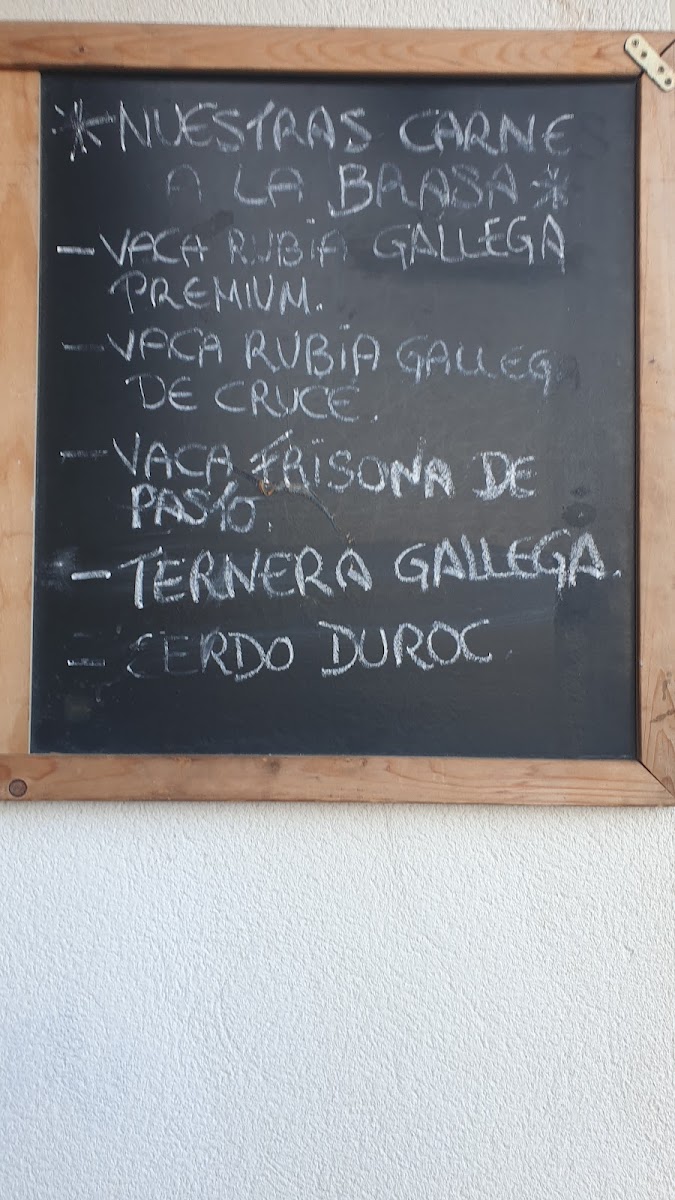 *NUESTRAS CARNE
A LA BRASA*
- VACA RUBIA GALLEGA
PREMIUM.
- VACA RUBIA GALLEG
DE CRUCE.
- VACA FRISONA DE
PASTO.
- TERNERA GALLEGA.
- CERDO DUROC